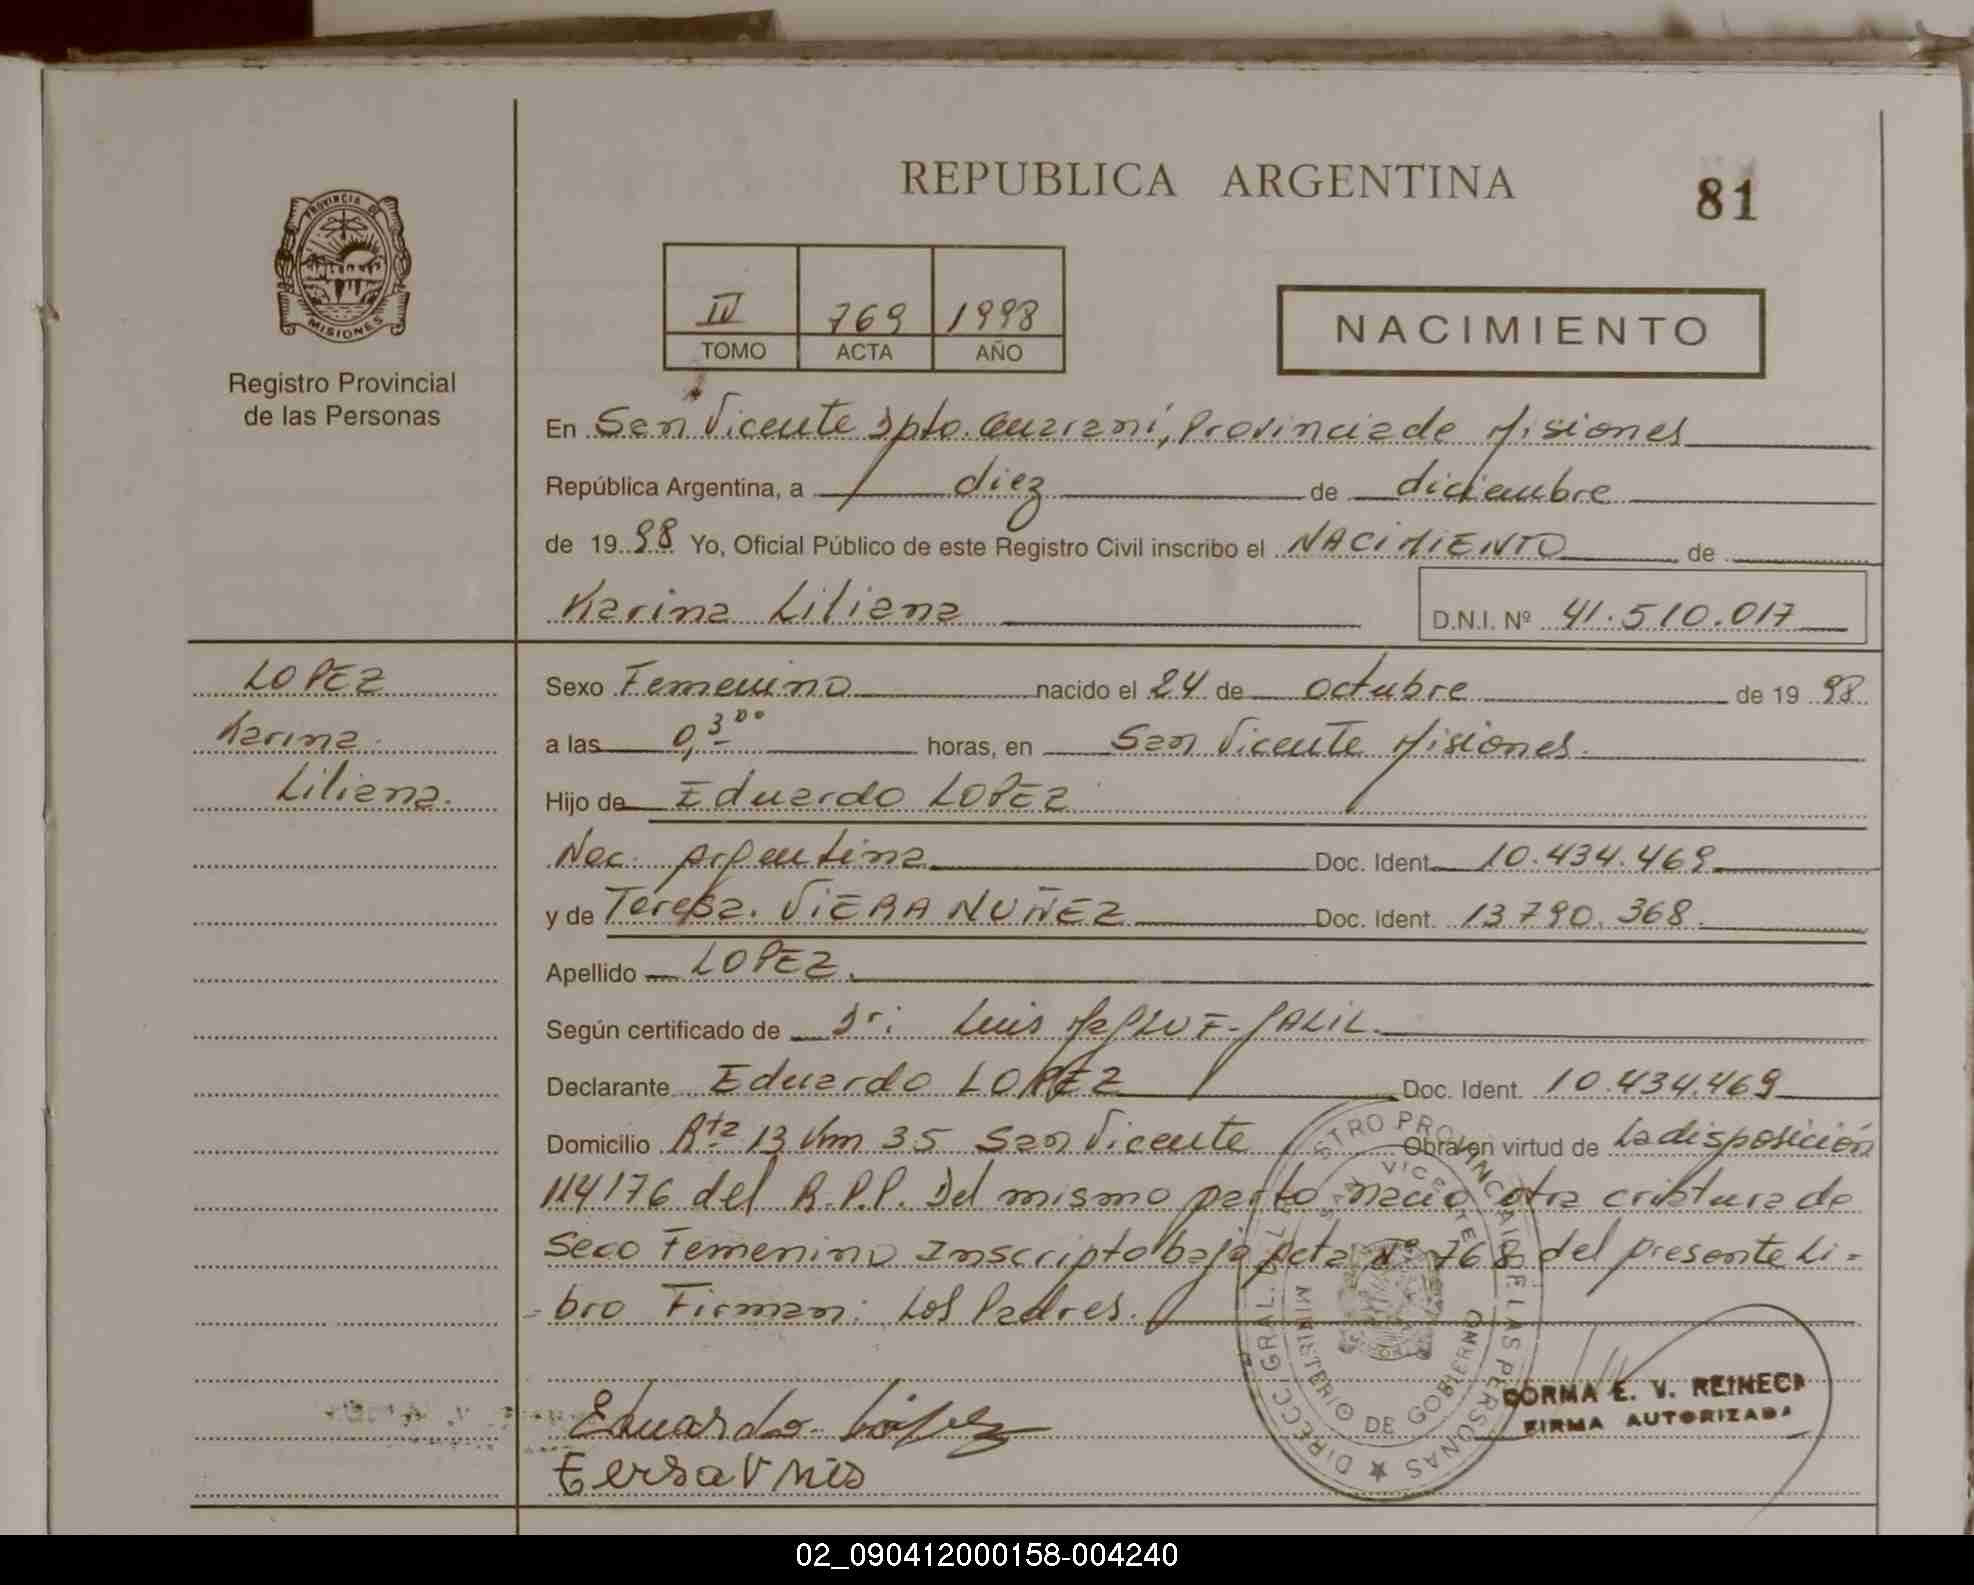 PROVINCIA DE
MISIONES
Registro Provincial
de las Personas
REPUBLICA ARGENTINA
81
IV 769 1998
TOMO ACTA AÑO
NACIMIENTO
En San Vicente Dpto. Guaraní, Provincia de Misiones
República Argentina, a diez de diciembre
de 19 98 Yo, Oficial Público de este Registro Civil inscribo el NACIMIENTO de
Karina Liliana D.N.I. Nº 41.510.017
LOPEZ
Karina
Liliana.
Sexo Femenino nacido el 24 de octubre de 19 98
a las 0,3 00 horas, en San Vicente Misiones.
Hijo de Eduardo LOPEZ
Nac. Argentina Doc. Ident. 10.434.469
y de Teresa. VIERA NUÑEZ Doc. Ident. 13.790.368.
Apellido LOPEZ.
Según certificado de Dr: Luis
Declarante Eduardo LOPEZ Doc. Ident. 10.434.469
Domicilio Rta 13 Km 35 San Vicente Obra en virtud de La disposición
114176 del R.P.P. Del mismo parto nació otra criatura de
Sexo Femenino Inscripto bajo Acta Nº 768 del presente Li=
=bro Firman: Los Padres.
Eduardo López
REGISTRO PROVINCIAL DE LAS PERSONAS
DIRECC. GRAL. DEL
SAN VICENTE
MINISTERIO DE GOBIERNO
E. V.
FIRMA AUTORIZADA
02_090412000158-004240